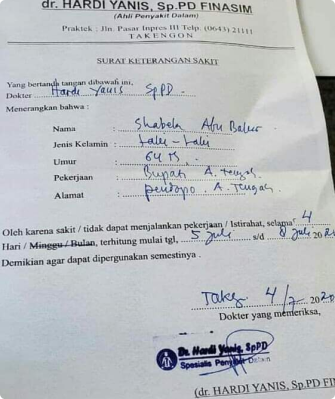 dr. HARDI YANIS, Sp.PD FINASIM
(Ahli Penyakit Dalam)
Praktek : Jln. Pasar Inpres III Telp. (0643) 21111
TAKENGON
SURAT KETERANGAN SAKIT
Yang bertanda tangan dibawah ini,
Dokter Hardi Yanis SpPD
Menerangkan bahwa :
Nama : Shabela Abu Bakar
Jenis Kelamin : Laki - Laki
Umur : 64 Th
Pekerjaan : Bupati A. Tengah
Alamat : pendopo. A. Tengah
Oleh karena sakit / tidak dapat menjalankan pekerjaan / Istirahat, selama 4
Hari / Minggu / Bulan, terhitung mulai tgl, 5 juli s/d 8 july 202
Demikian agar dapat dipergunakan semestinya .
4/7 - 202
Dokter yang memeriksa,
Dr. Hardi Yanis, SpPD
Spesialis Penyakit Dalam
(dr. HARDI YANIS, Sp.PD FI